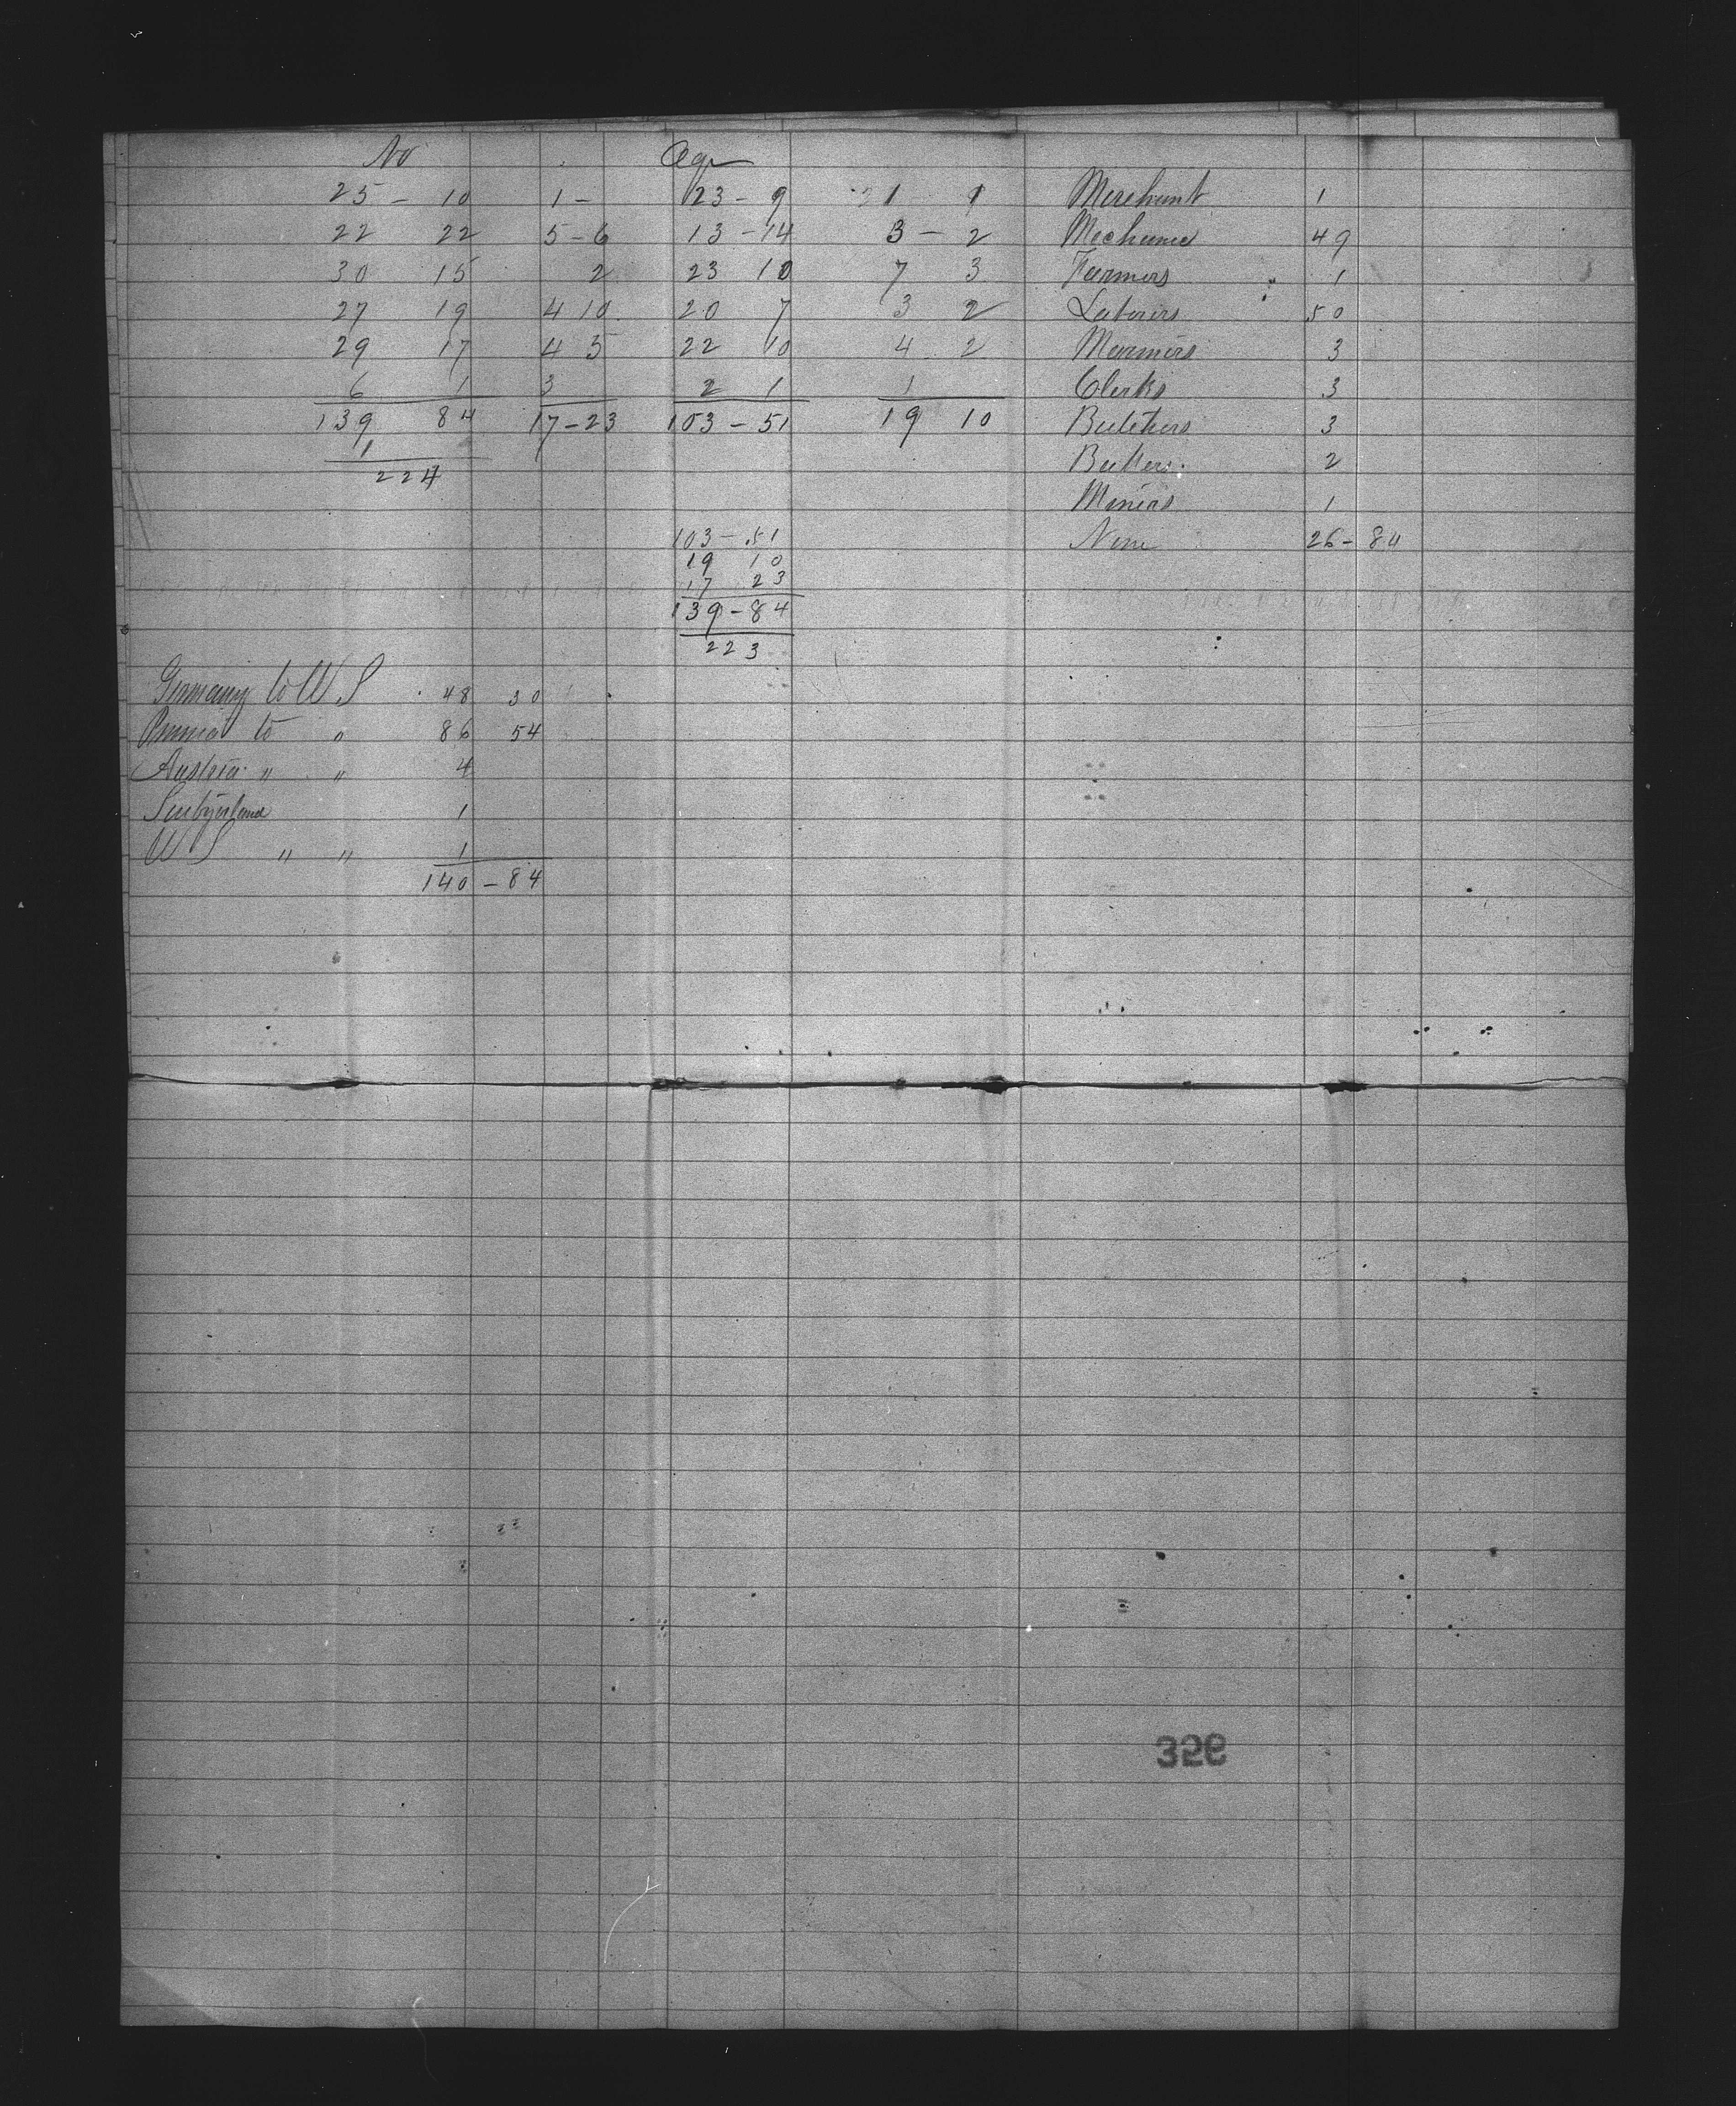 No Age
25 - 10 1 - 23 - 9 1 1 Merchant 1
22 22 5 - 6 13 - 14 3 - 2 Mechanics 49
30 15 2 23 10 7 3 Farmers 1
27 19 4 10 20 7 3 2 Laborers 50
29 17 4 5 22 10 4 2 Mariners 3
6 1 3 2 1 1 Clerks 3
139 84 17 - 23 103 - 51 19 10 Butchers 3
1 Bakers 2
224
Miners 1
103 - 51 None 26 - 84
19 10
17 23
139 - 84
223
Germany to U S 48 30
Prussia to " 86 54
Austria " " 4
Switzerland 1
U S " " 1
140 - 84
326